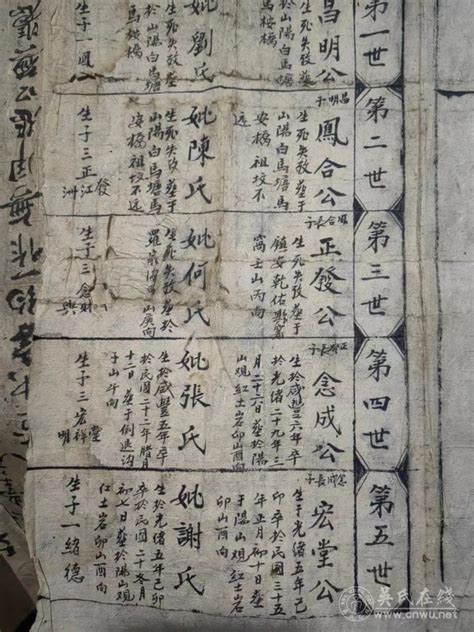 第一世
昌明公
生死失攷葬
於山陽白馬塘
馬桉橋
妣劉氏
生死失攷葬
於山陽白馬塘
馬桉橋
生子一鳳
第二世
昌明子
鳳合公
生死失攷葬于
山陽白馬塘馬
安橋祖坟不
远
妣陳氏
生死失攷葬于
山陽白馬塘馬
安橋祖坟不远
生子三正江
發
洲
第三世
鳳合長子
正發公
生死失攷葬于
鎮安乾佑縣窰
窩壬山丙向
妣何氏
生死失攷葬於
山廣向
生子三念財
興
第四世
正發長子
念成公
生於咸豐六年卒
於光緒二十九年三
月二十六日葬於陽
山觀紅土岩卯山酉向
妣張氏
生於咸豐五年卒
於民國二十二年臘月
十二日葬于倒退沟
子山午向
生子三宏祥
堂
明
第五世
念成長子
宏堂公
生于光緒五年己
卯卒於民國三十五
年正月初十日葬
于陽山观紅土岩
卯山酉向
妣謝氏
生於光緒五年己卯
卒於民國二十冬月
初七日葬於陽山观
紅土岩卯山酉向
生子一緒德
吳氏在綫
www.cnwu.net